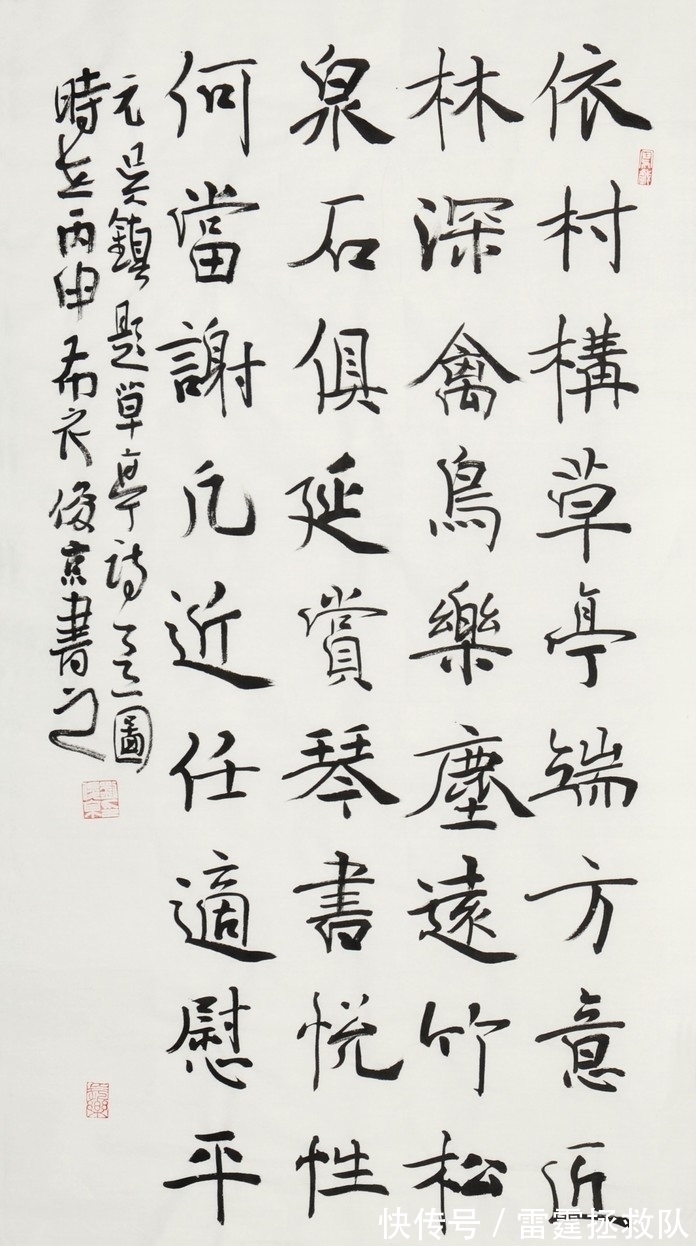 依村構草亭端方意匠
林深禽鳥樂塵遠竹松
泉石俱延賞琴書悅性
何當謝凡近任適慰平
元吳鎮題草亭詩圖
時在丙申布衣俊京書之
快传号 / 雷霆拯救队